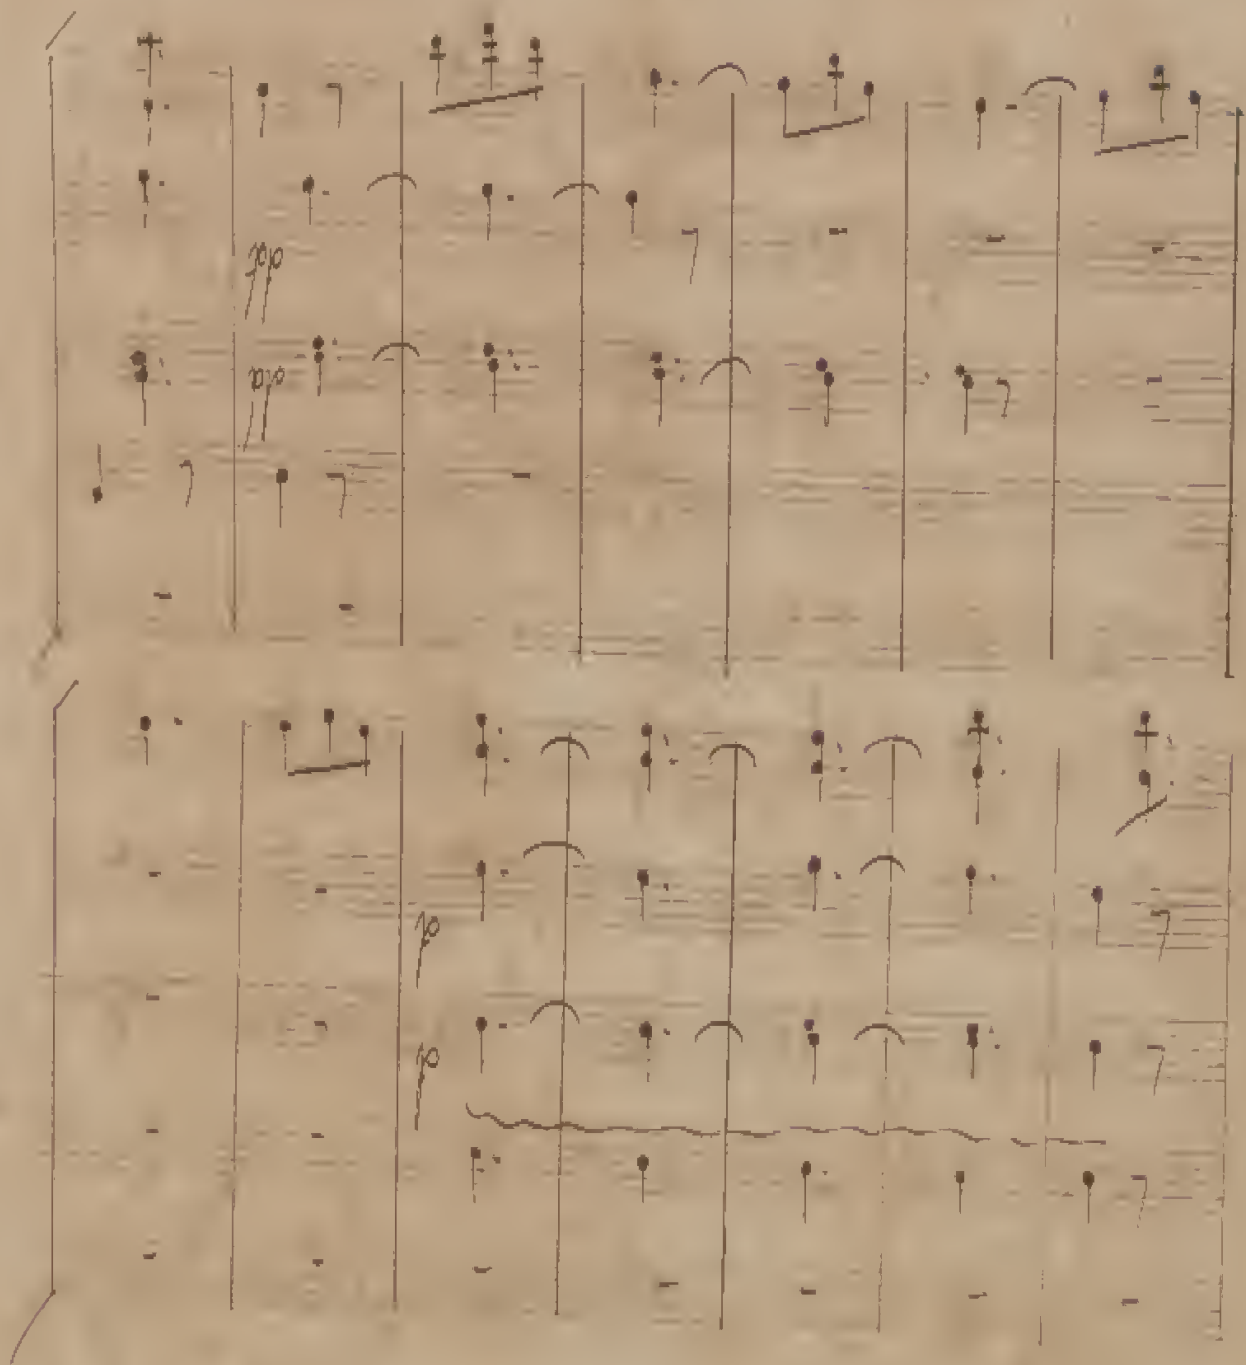 pp
pp
p
p